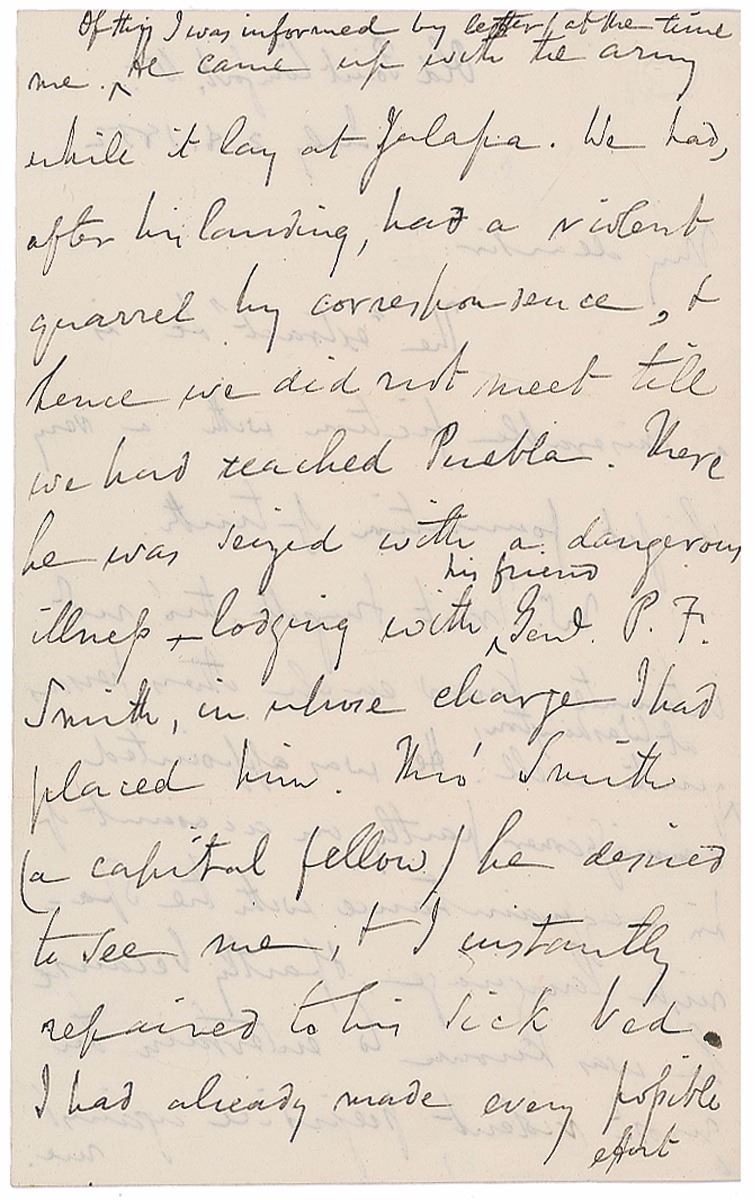 Of this I was informed by letter, at the time
me. ^ He came up with the army
while it lay at Jalapa. We had,
after his landing, had a violent
quarrel by correspondence, &
hence we did not meet till
we had reached Puebla. There
he was seized with a dangerous
his friend
illness & lodging with ^ Genl. P. F.
Smith, in whose charge I had
placed him. Thro' Smith
(a capital fellow) he desired
to see me, & I instantly
repaired to his sick bed.
I had already made every possible
effort